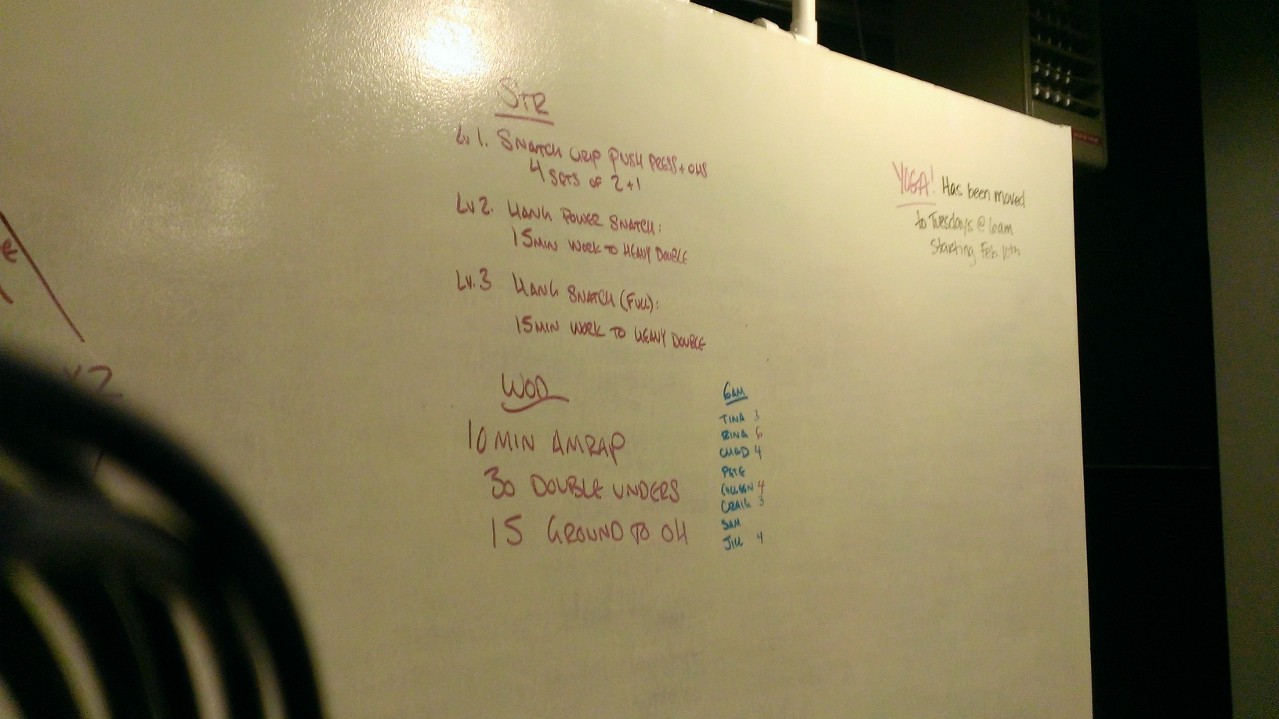 STR
Lv 1. SNATCH GRIP PUSH PRESS + OHS
4 SETS OF 2+1
Lv 2. HANG POWER SNATCH:
15 MIN WORK TO HEAVY DOUBLE
Lv. 3 HANG SNATCH (FULL):
15 MIN WORK TO HEAVY DOUBLE
WOD
10 MIN AMRAP
30 DOUBLE UNDERS
15 GROUND TO OH
6AM
TINA 3
CHAD 4
PETE
COLLEEN 4
CRAIG 3
SAM
JILL 4
YOGA! Has been moved
to Tuesdays @ 6am
Starting Feb. 10th
x2